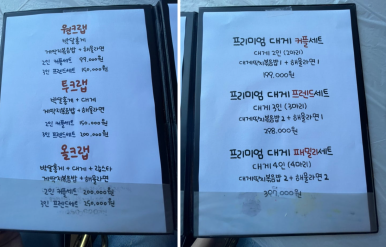 원크랩
박달홍게
게딱지볶음밥 + 해물라면
2인 커플세트 99.000원
3인 프렌드세트 150.000원
투크랩
박달홍게 + 대게
게딱지볶음밥 + 해물라면
2인 커플세트 150.000원
3인 프렌드세트 200.000원
올크랩
박달홍게 + 대게 + 랍스타
게딱지볶음밥 + 해물라면
2인 커플세트 200.000원
3인 프렌드세트 250.000원
프리미엄 대게 커플세트
대게 2인 (2마리)
대게딱지볶음밥 1 + 해물라면 1
199.000원
프리미엄 대게 프렌드세트
대게 3인 (3마리)
대게딱지볶음밥 2 + 해물라면 1
298.000원
프리미엄 대게 패밀리세트
대게 4인 (4마리)
대게딱지볶음밥 2 + 해물라면 2
397.000원